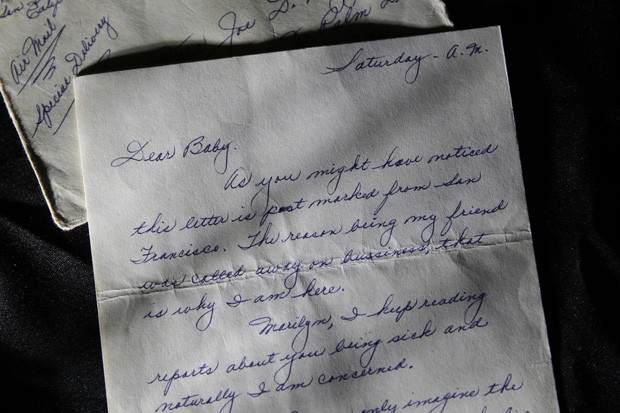 San
Joe D.
Palm
Air Mail
Special Delivery
Saturday - A.M.
Dear Baby.
As you might have noticed
this letter is post marked from San
Francisco. The reason being my friend
was called away on bussiness, that
is why I am here.
Marilyn, I keep reading
reports about you being sick and
naturally I am concerned.
only imagine the